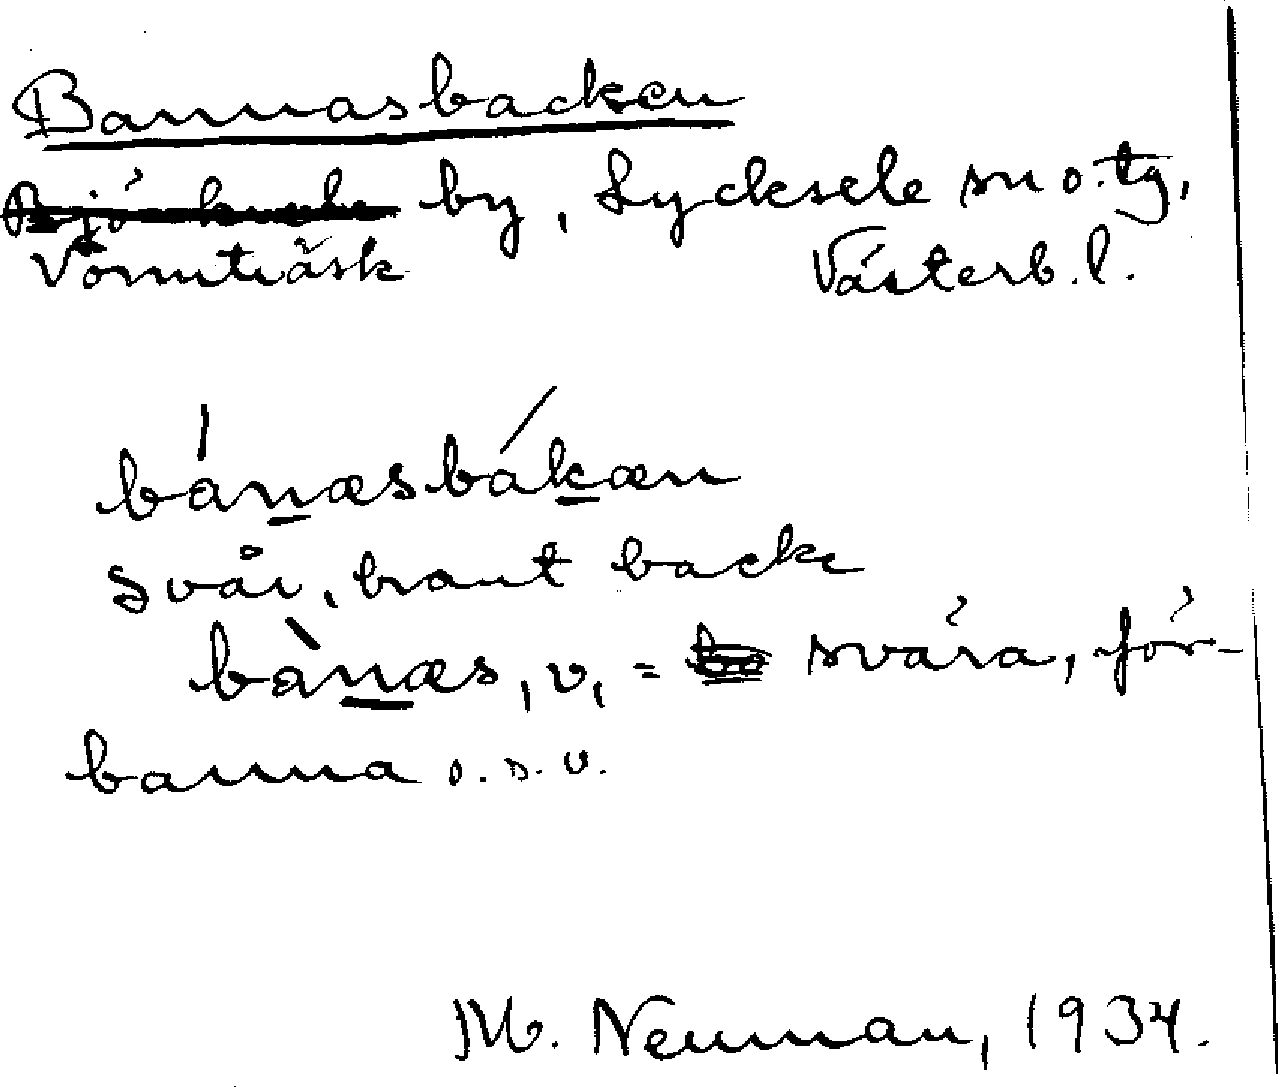 Bannasbacken
by, Lycksele sn o. tg,
Vormträsk Västerb. l.
bánæsbákæn
svår, brant backe
bànæs, v, = svära, för-
banna o. s. v.
M. Neuman, 1934.